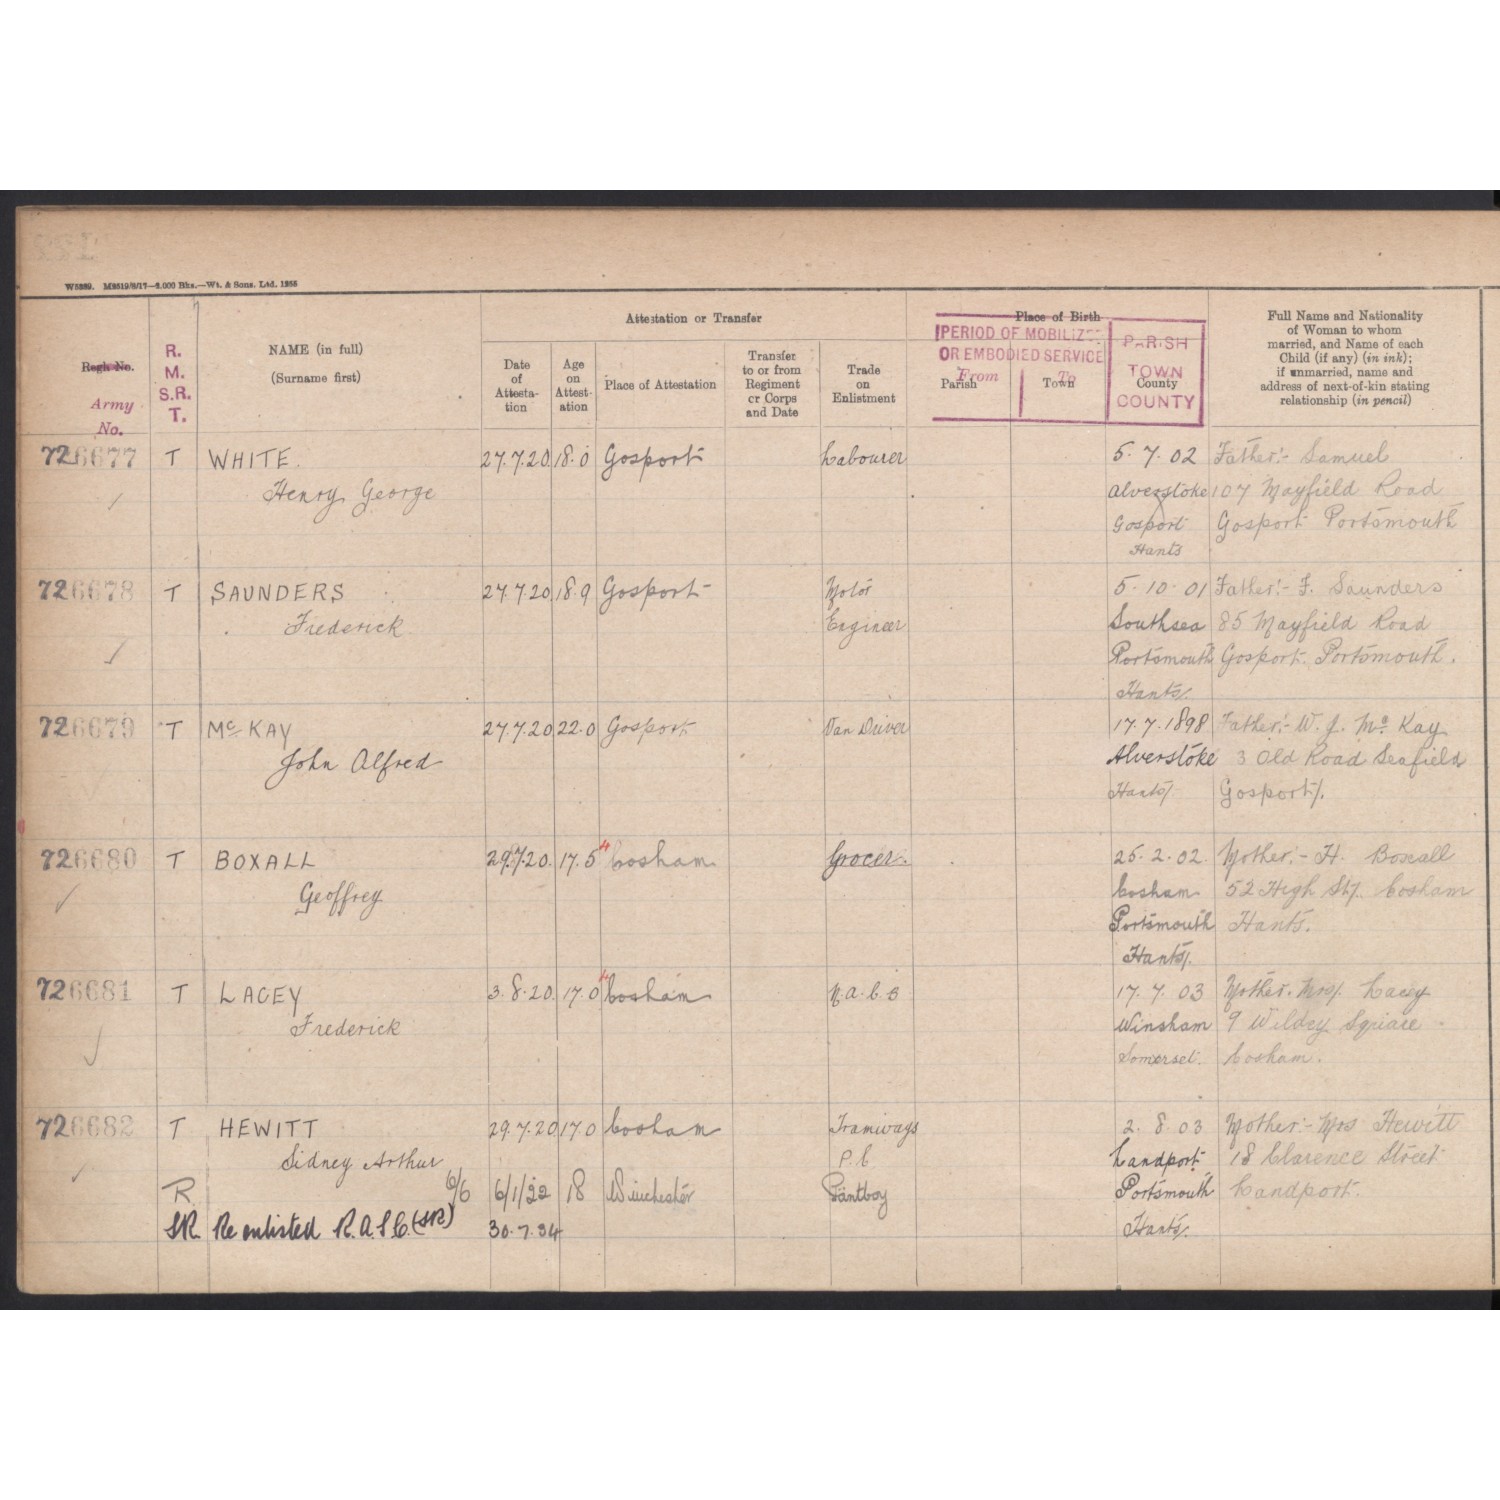 W5289. M2519/8/17—2.000 Bks.—Wt. & Sons. Ltd. 1256
Regtl. No.
Army
No.
R.
M.
S.R.
T.
NAME (in full)
(Surname first)
Attestation or Transfer
Date
of
Attesta-
tion
Age
on
Attest-
ation
Place of Attestation
Transfer
to or from
Regiment
or Corps
and Date
Trade
on
Enlistment
Place of Birth
PERIOD OF MOBILIZ
OR EMBODIED SERVICE
From To
Parish
Town
County
PARISH
TOWN
COUNTY
Full Name and Nationality
of Woman to whom
married, and Name of each
Child (if any) (in ink);
if unmarried, name and
address of next-of-kin stating
relationship (in pencil)
726677 T WHITE. 27.7.20 18.0 Gosport Labourer 5.7.02 Father:- Samuel
Henry George Alverstoke 107 Mayfield Road
Gosport Gosport Portsmouth
Hants
726678 T SAUNDERS 27.7.20 18.9 Gosport Motor 5.10.01 Father:- F. Saunders
Frederick Engineer Southsea 85 Mayfield Road
Portsmouth Gosport. Portsmouth.
Hants/.
726679 T McKAY 27.7.20 22.0 Gosport Van Driver 17.7.1898 Father:- W. J. Mc Kay
John Alfred Alverstoke 3 Old Road Seafield
Hants/ Gosport/.
726680 T BOXALL 29.7.20. 17.5 4 Cosham Grocer. 25.2.02. Mother:- H. Boxall
Geoffrey Cosham 52 High St/. Cosham
Portsmouth Hants.
Hants/.
726681 T LACEY 3.8.20 17.0 4 Cosham 17.7.03 Mother. Mrs/. Lacey
Frederick Winsham 9 Wildey Square
Somerset. Cosham.
726682 T HEWITT 29.7.20 17.0 Cosham Tramways 2.8.03 Mother:- Mrs Hewitt
Sidney Arthur P.C Landport 18 Clarence Street
R. 6/6 6/1/22 18 Winchester Pantboy Portsmouth Landport.
SR Re enlisted R.A.S.C.(SR) 30.7.34 Hants/.